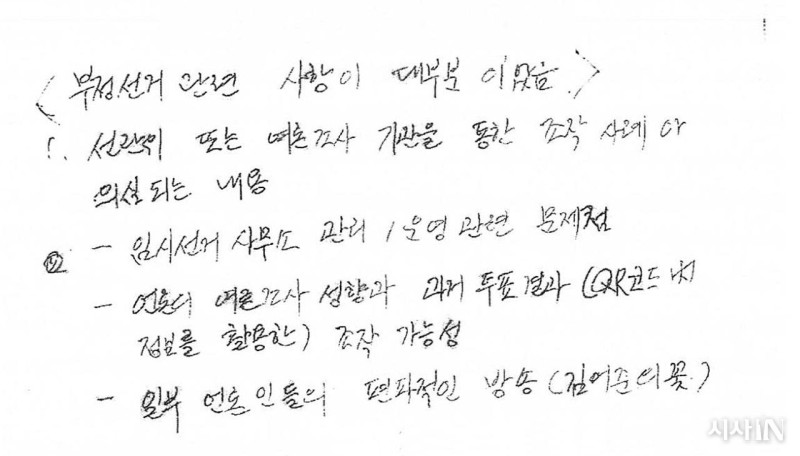 <부정선거 관련 사항이 대부분이었음>
1. 선관위 또는 여론조사 기관을 통한 조작 사례나
의심되는 내용
- 임시선거 사무소 관리/운영 관련 문제점
②
- 언론의 여론조사 성향과 과거 투표결과 (QR코드 내
정보를 활용한) 조작 가능성
- 일부 언론인들의 편파적인 방송 (김어준의 꽃)
시사IN